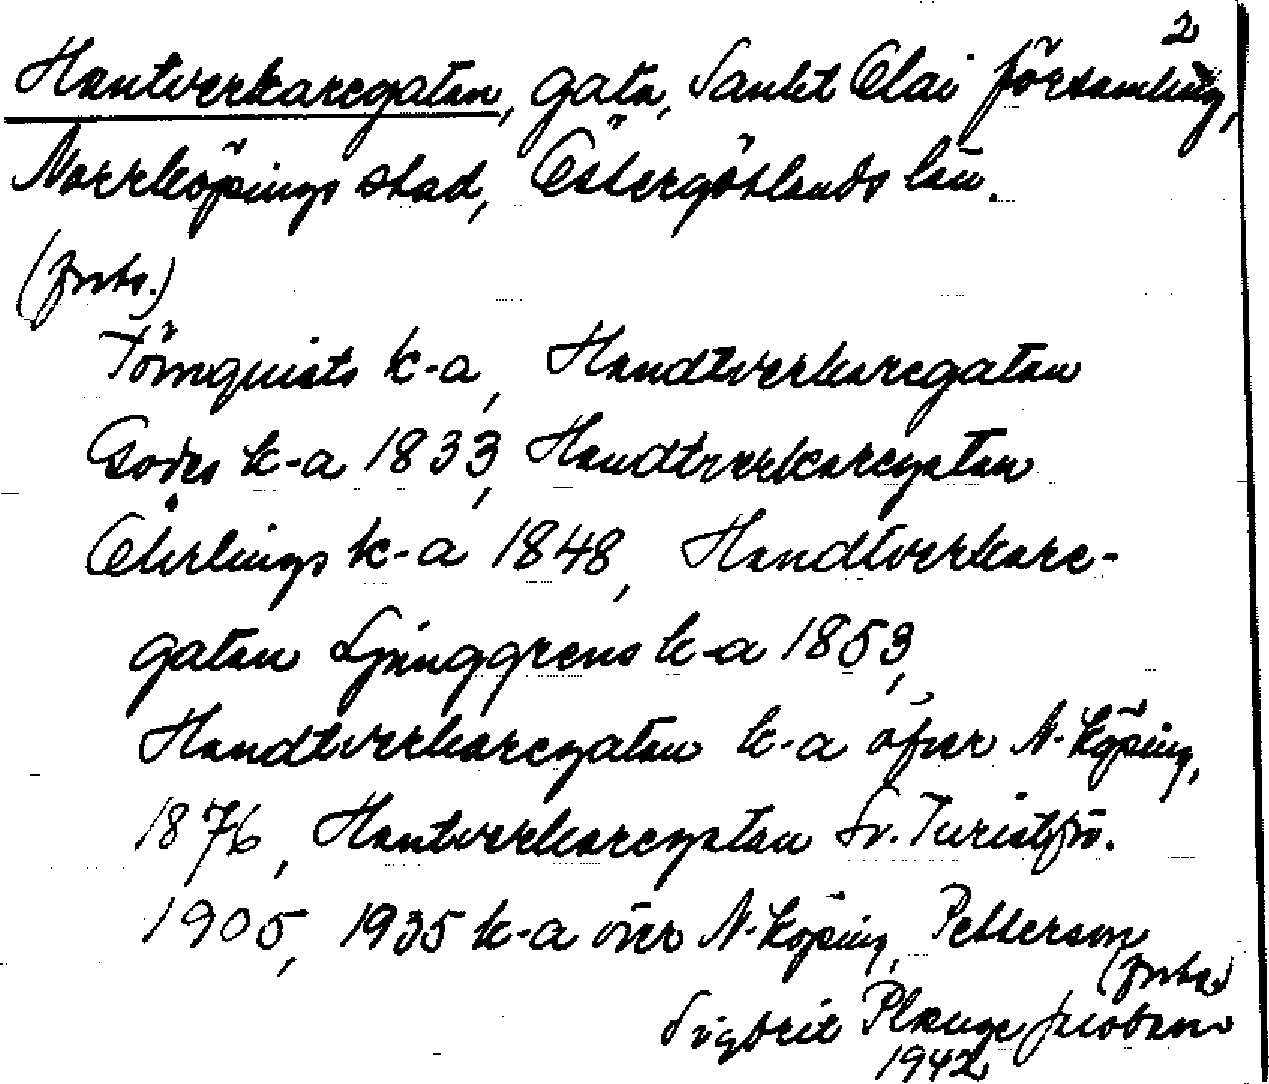 2
Hantverkaregatan, gata, Sankt Olai församling,
Norrköpings stad, Östergötlands län.
(forts.)
Törnquists k-a, Handtverkaregatan
Godes k-a 1833, Handtverkaregatan
Öhrlings k-a 1848, Handtverkare-
gatan Ljunggrens k-a 1853,
Handtverkaregatan k-a öfver N-köping,
1876, Hantverkaregatan Sv. Turistfö.
1905, 1935 k-a över N-köping, Petterson
(forts.)
Sigbrit Plænge Jacobson
1942